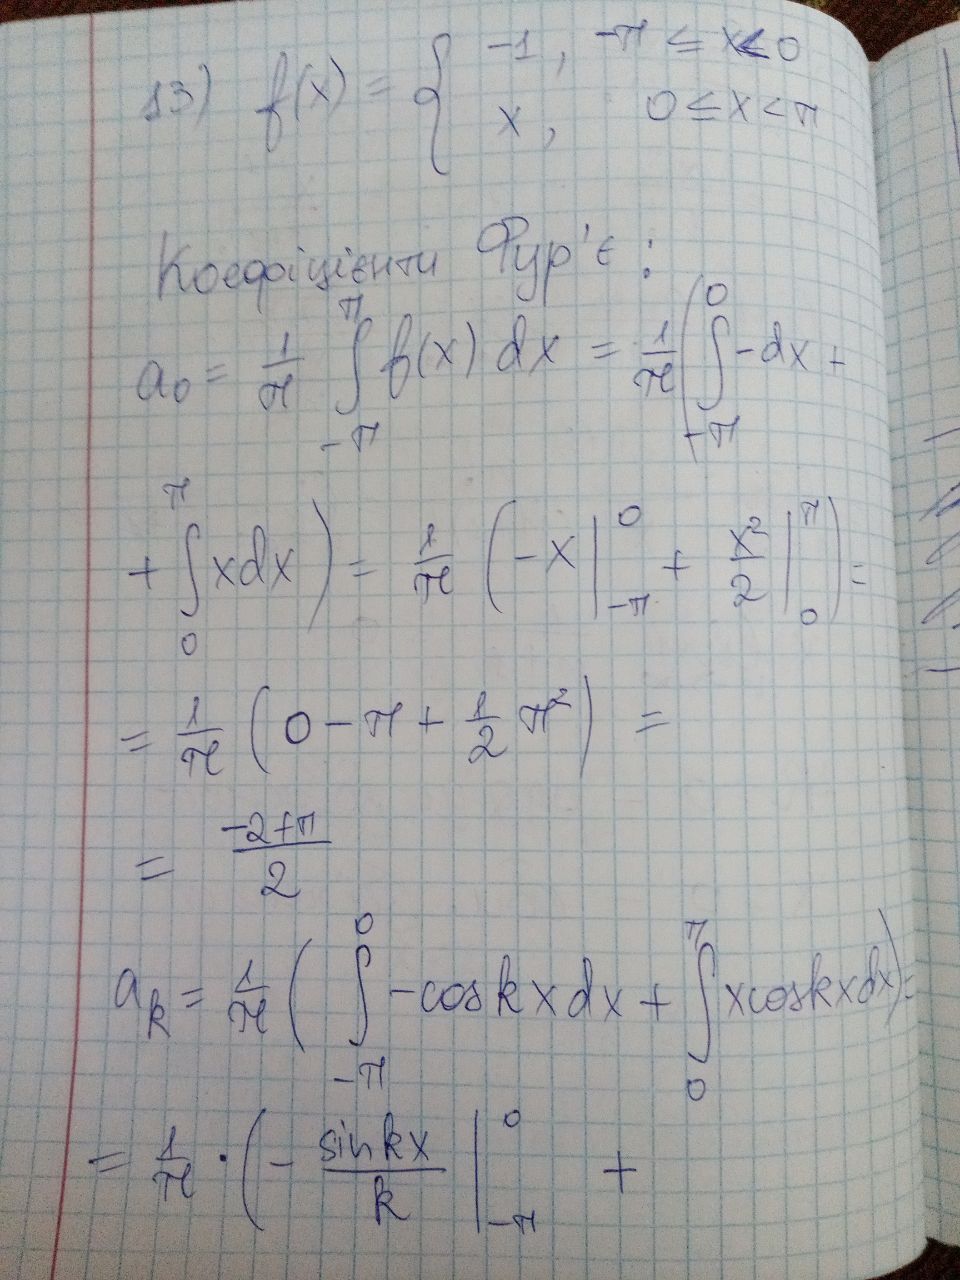 13) f(x) = { -1, -π ≤ x < 0
x, 0 ≤ x < π
Коефіцієнти Фур'є:
a₀ = 1/π ∫_{-π}^{π} f(x) dx = 1/π ( ∫_{-π}^{0} -dx +
+ ∫_{0}^{π} xdx ) = 1/π ( -x |_{-π}^{0} + x²/2 |_{0}^{π} ) =
= 1/π ( 0 - π + 1/2 π² ) =
= (-2+π)/2
a_k = 1/π ( ∫_{-π}^{0} -cos kx dx + ∫_{0}^{π} x cos kx dx ) =
= 1/π · ( - sin kx / k |_{-π}^{0} +